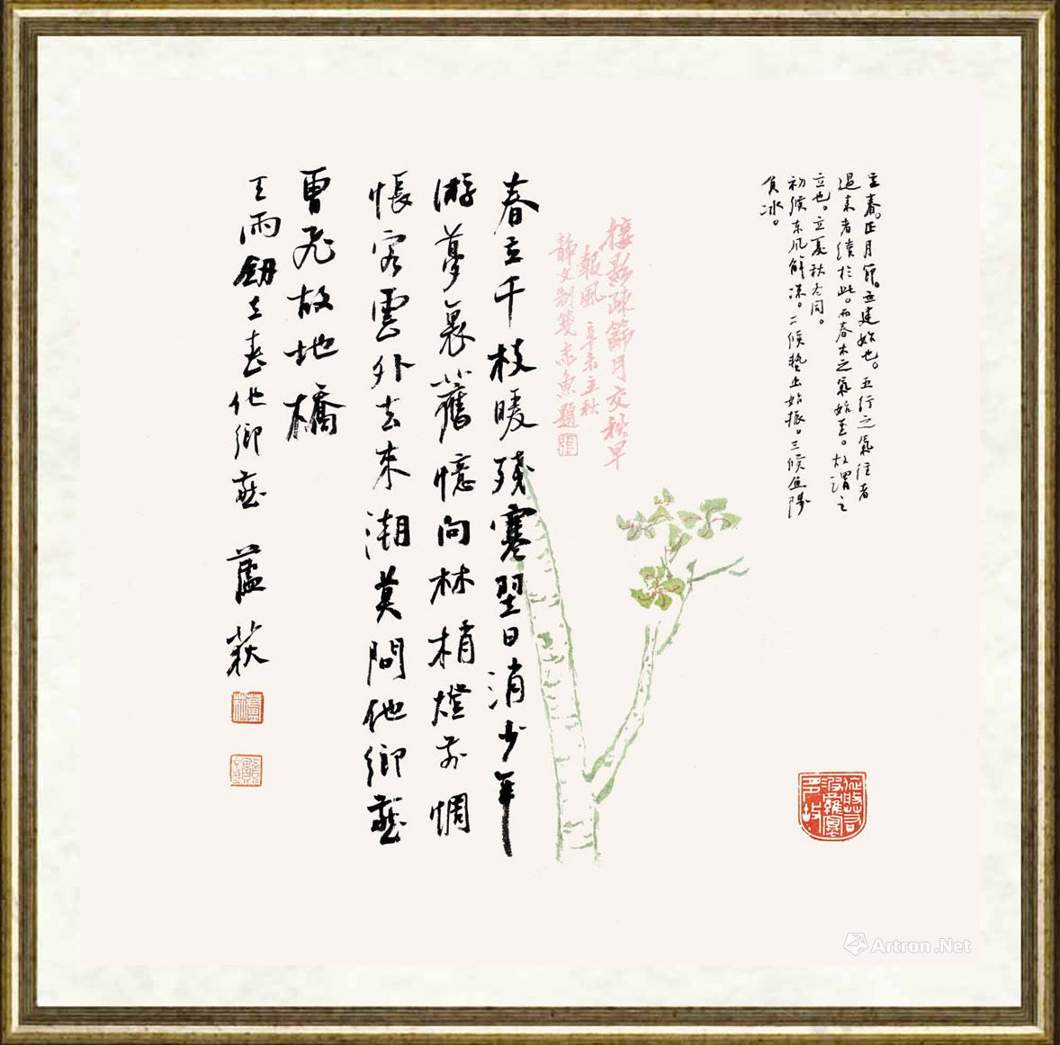 立春。正月節。立建始也。五行之氣往者
過來者續於此。而春木之氣始至。故謂之
立也。立夏秋冬同。
初候東風解凍。二候蟄虫始振。三候魚陟
負冰。
影疎篩月交秋早
報風 辛未立秋
静文制箋 赤魚題
春立千枝暖殘寒翌日消少年
游夢裏舊憶向林梢燈前惆
悵客雲外去來潮莫問他鄉燕
曾飛故地橋
王雨立春他鄉燕 蘆荻
Artron.Net